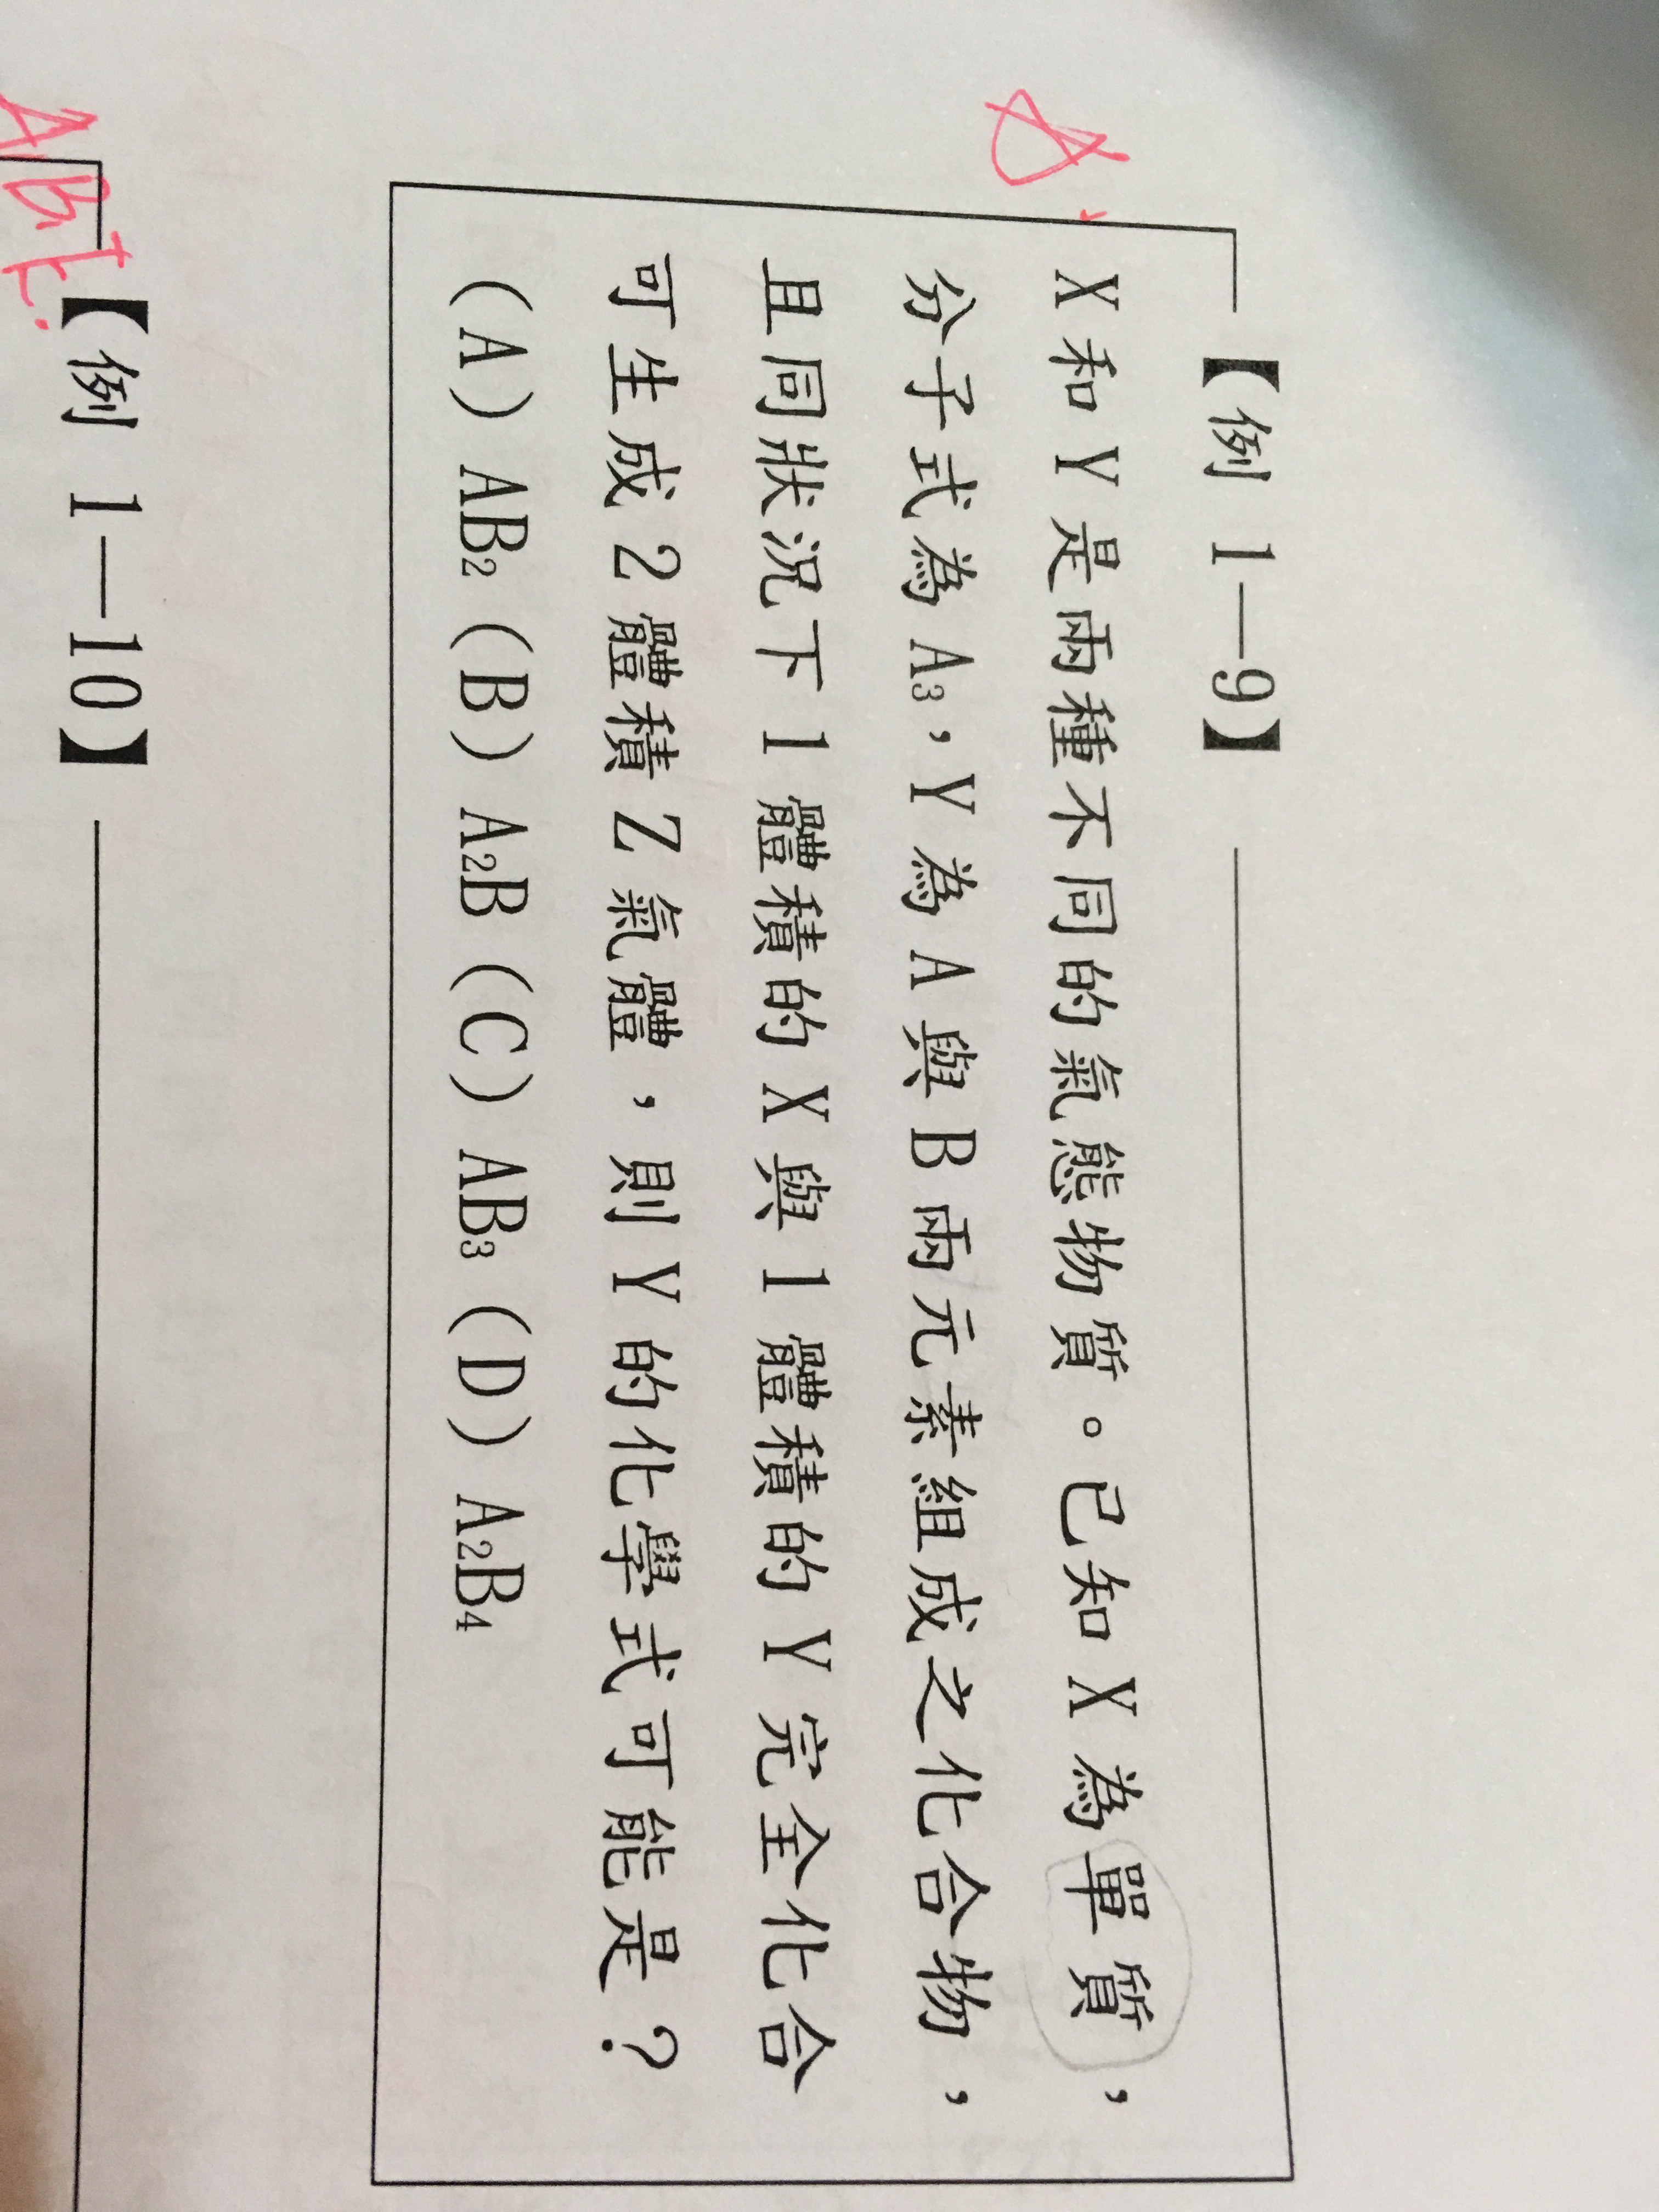 【例 1—9】
X 和 Y 是兩種不同的氣態物質。已知 X 為單質，
分子式為 A₃，Y 為 A 與 B 兩元素組成之化合物，
且同狀況下 1 體積的 X 與 1 體積的 Y 完全化合
可生成 2 體積 Z 氣體，則 Y 的化學式可能是？
(A) AB₂ (B) A₂B (C) AB₃ (D) A₂B₄
ABE.
【例 1—10】